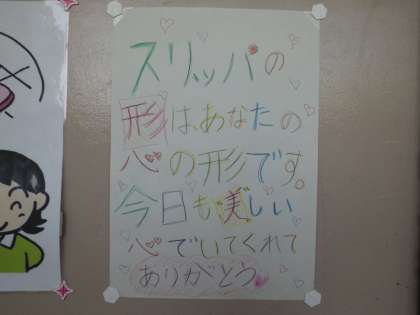 スリッパの
形は、あなたの
心の形です。
今日も美しい
心でいてくれて
ありがとう